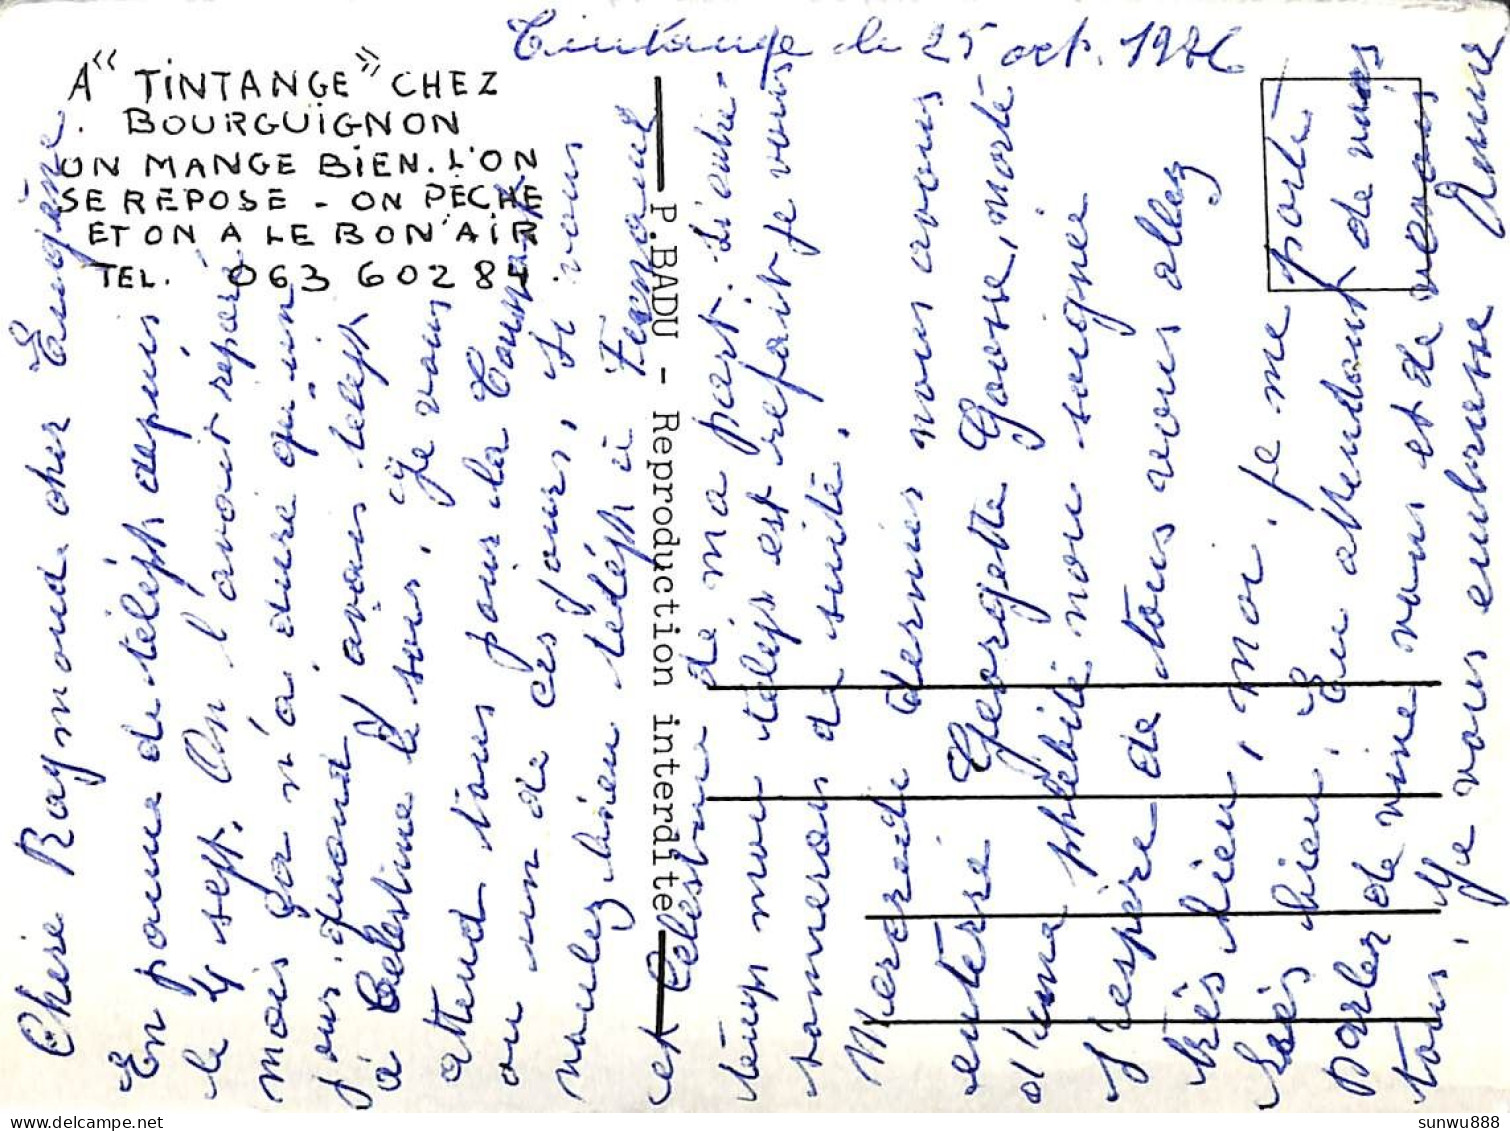 Tintange le 25 oct. 1986
A "TINTANGE" CHEZ
BOURGUIGNON
ON MANGE BIEN. L'ON
SE REPOSE - ON PÊCHE
ET ON A LE BON AIR
TEL. 063 60284
P.BADU - Reproduction interdite
Chère Raymonde cher Eugène
En panne de téléph depuis
le 4 sept. On l'avait réparé
mais ça n'a duré qu'un
jour. quand j'avais téléph
à Célestine le soir. Je vous
attend tous pour la Toussaint
ou un de ces jours, Si vous
voulez bien téléph à Fernand
et Célestine de ma part. Si entre-
temps mon téléph est refait je vous
sonnerai de suite.
Mercredi dernier nous avons
enterré Georgette Gosse, morte
d'une phlébite non soignée
J'espère de tous vous allez
très bien, moi, je me porte
très bien. En attendant de vous
parler de vive voix et de vous
tous. Je vous embrasse